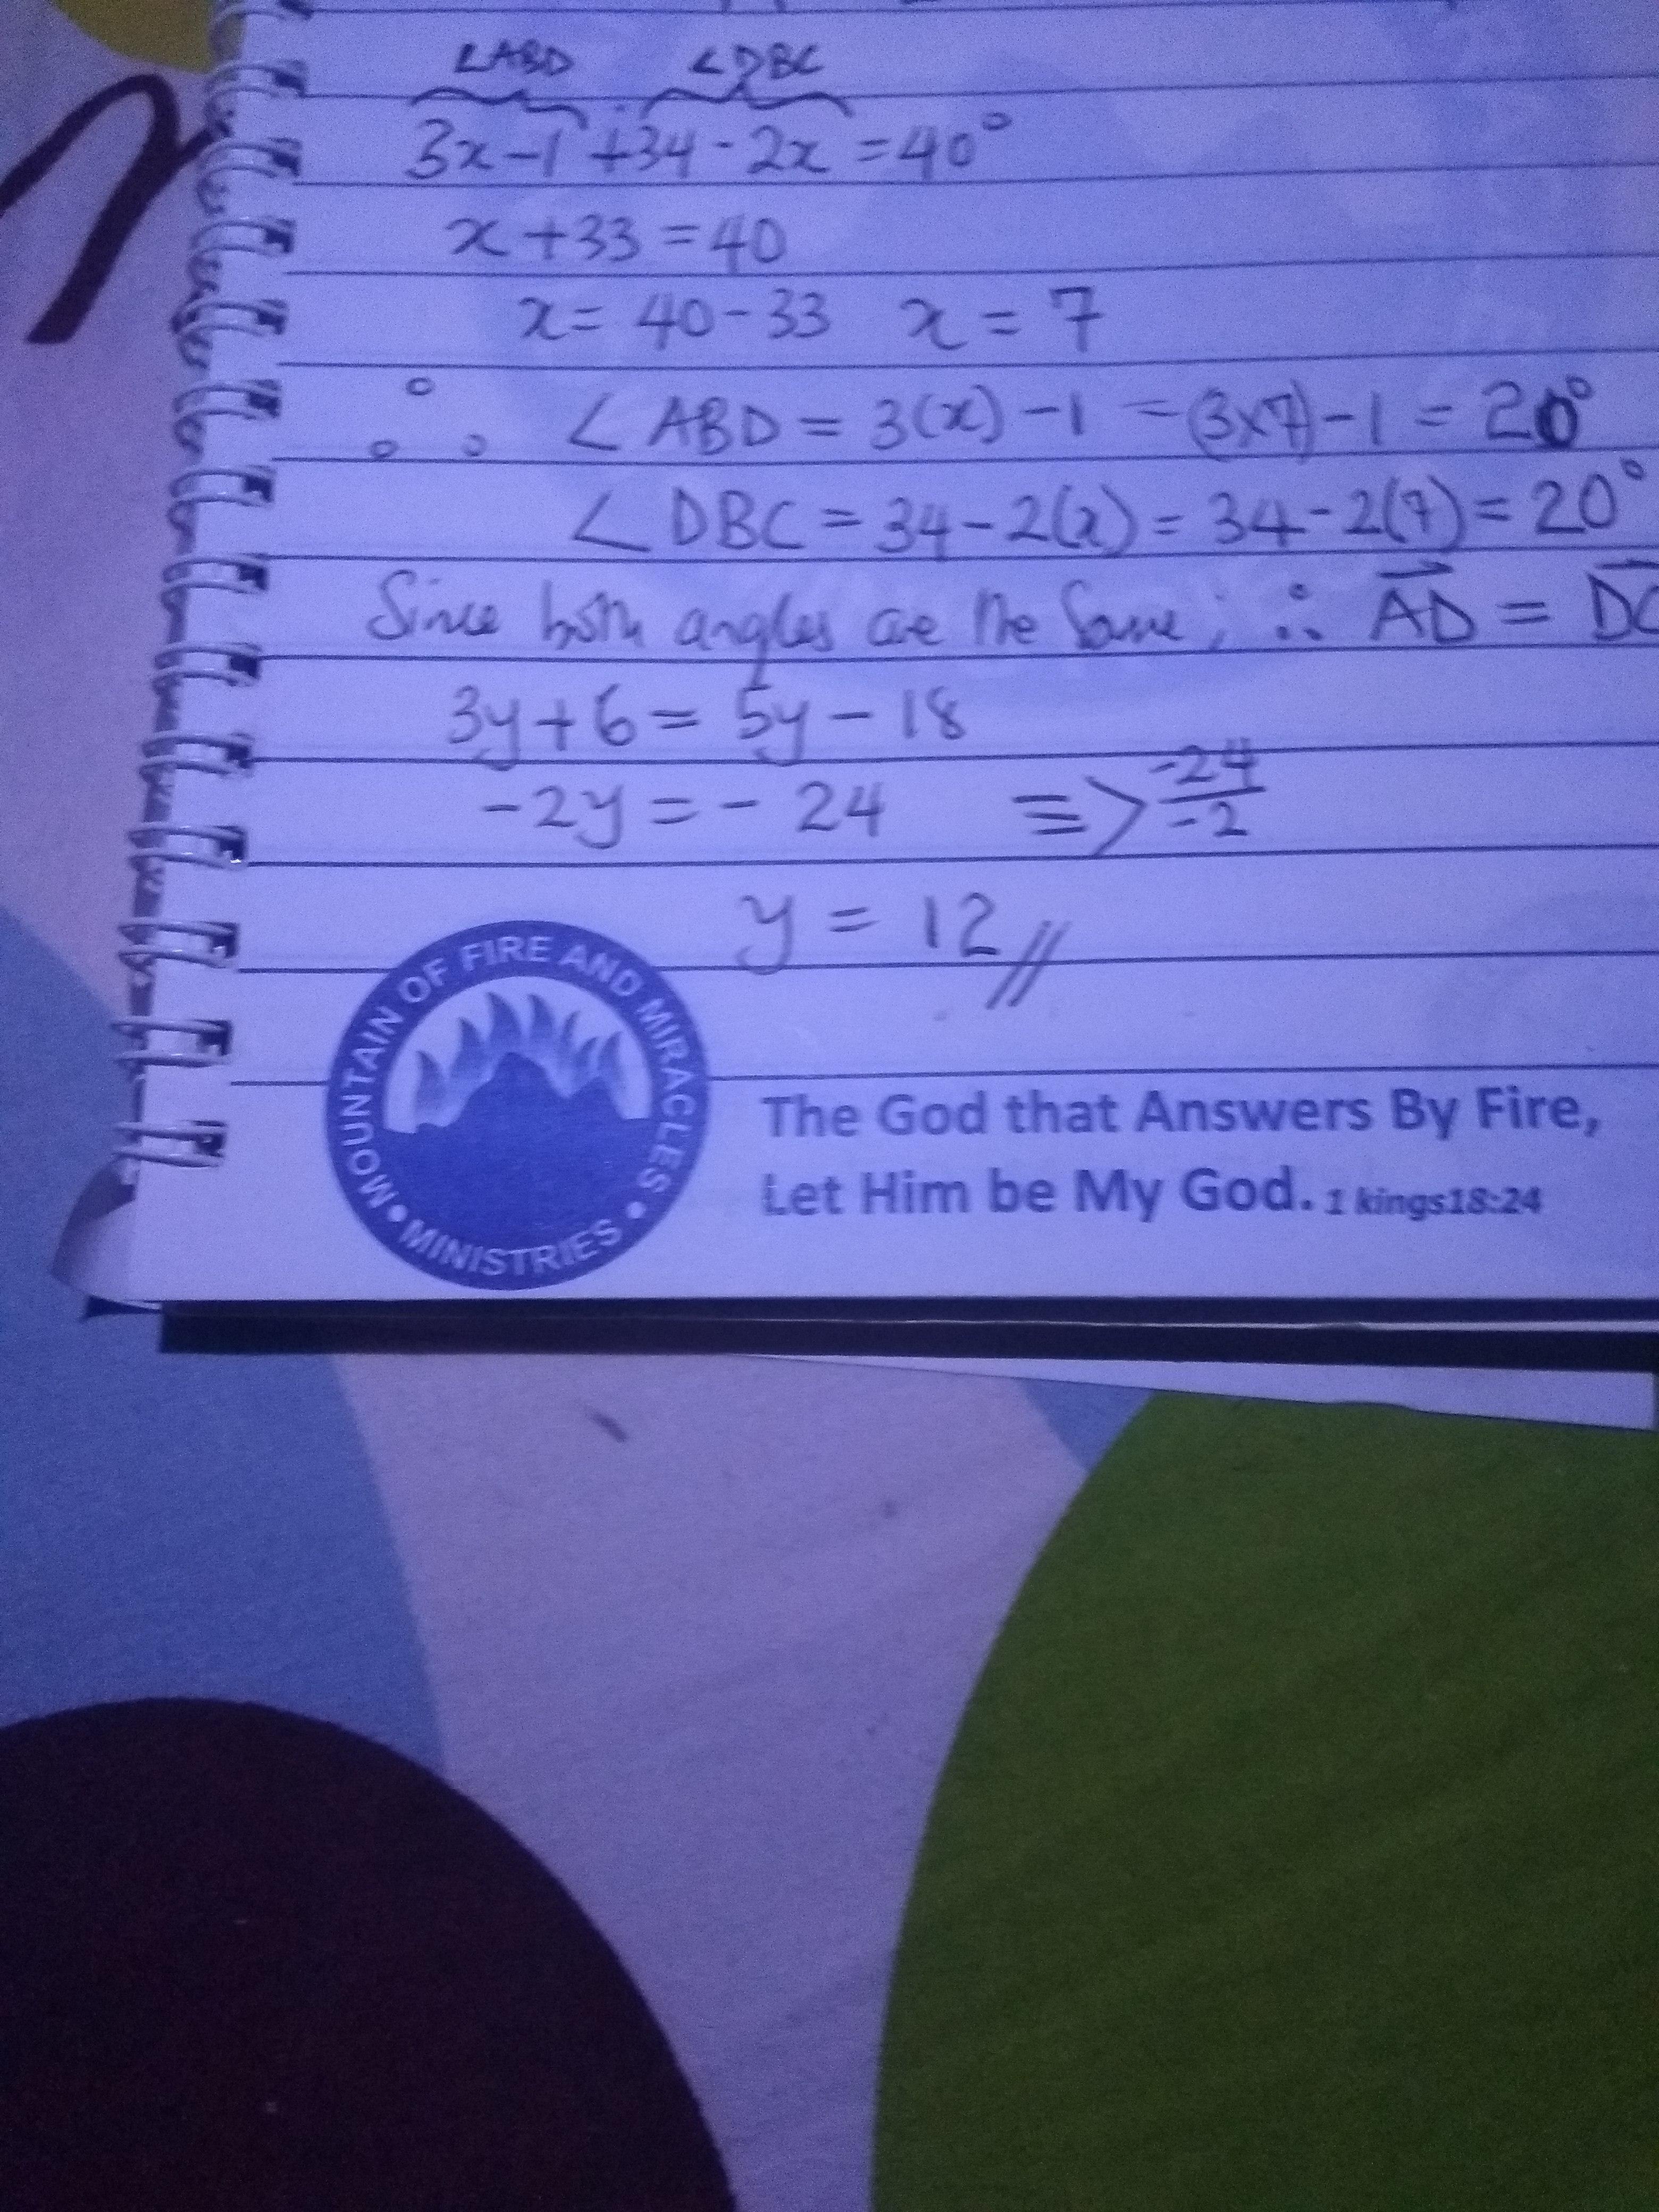 ∠ABD ∠DBC
3x-1 + 34 - 2x = 40°
x + 33 = 40
x = 40 - 33 x = 7
∴ ∠ABD = 3(x) - 1 = (3x7) - 1 = 20°
∠DBC = 34 - 2(x) = 34 - 2(7) = 20°
Since both angles are the same; ∴ AD = DC
3y + 6 = 5y - 18
-2y = - 24 => -24/-2
y = 12 //
MOUNTAIN OF FIRE AND MIRACLES • MINISTRIES •
The God that Answers By Fire,
Let Him be My God. 1 kings18:24